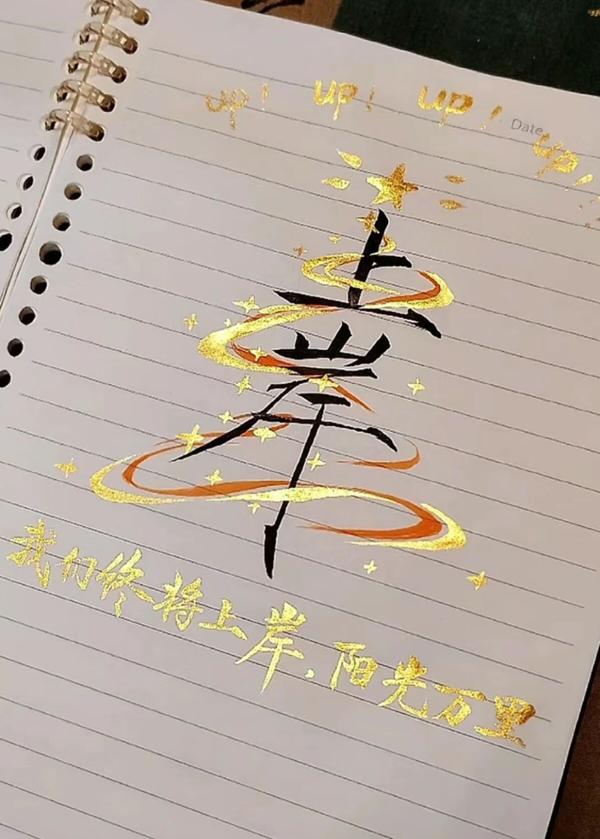 up! up! up! up!
Date
上
岸
我们终将上岸,阳光万里